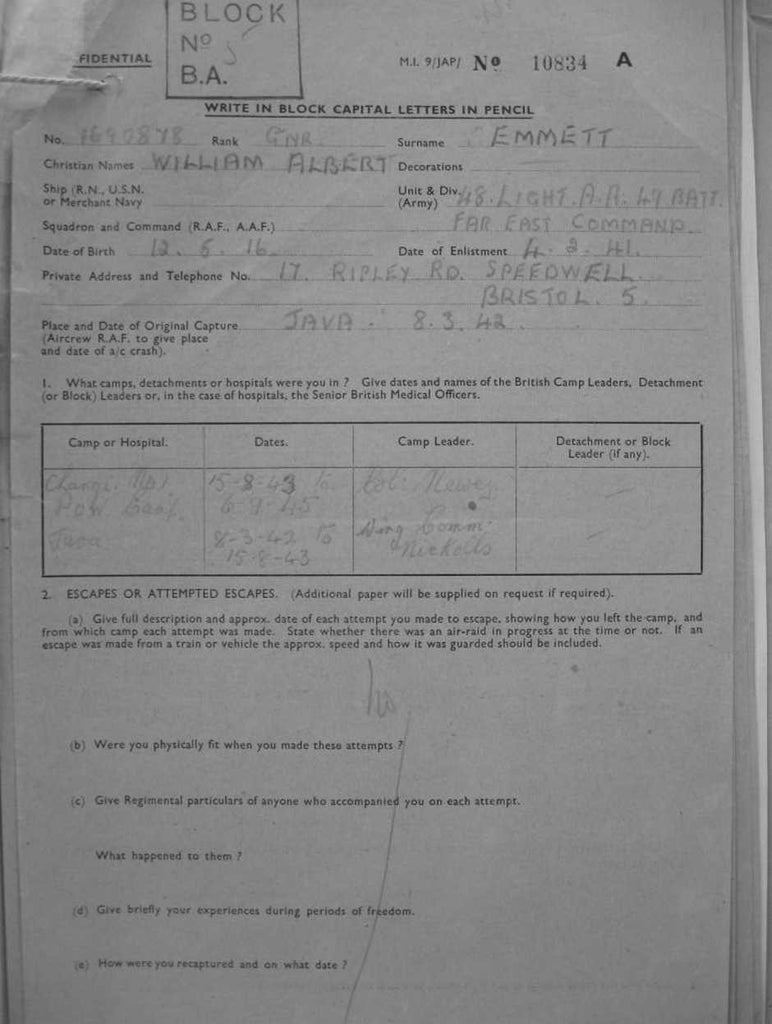 BLOCK
Nº 5
B.A.
FIDENTIAL
M.I. 9/JAP/ Nº 10834 A
WRITE IN BLOCK CAPITAL LETTERS IN PENCIL
No. 1690878 Rank GNR Surname EMMETT
Christian Names WILLIAM ALBERT Decorations
Ship (R.N., U.S.N. or Merchant Navy
Unit & Div. (Army) 48. LIGHT. A.A. 49 BATT.
FAR EAST COMMAND.
Squadron and Command (R.A.F., A.A.F.)
Date of Birth 12. 5. 16. Date of Enlistment 4. 2. 41.
Private Address and Telephone No. 17. RIPLEY RD. SPEEDWELL.
BRISTOL. 5.
Place and Date of Original Capture JAVA. 8.3.42.
(Aircrew R.A.F. to give place
and date of a/c crash).
1. What camps, detachments or hospitals were you in ? Give dates and names of the British Camp Leaders, Detachment
(or Block) Leaders or, in the case of hospitals, the Senior British Medical Officers.
Camp or Hospital. Dates. Camp Leader. Detachment or Block
Leader (if any).
Changi. 15-8-43 to Col: Newey
POW Camp. 6-9-45
Java 8-3-42 to Wing Comm:
15-8-43 Nickolls
2. ESCAPES OR ATTEMPTED ESCAPES. (Additional paper will be supplied on request if required).
(a) Give full description and approx. date of each attempt you made to escape, showing how you left the camp, and
from which camp each attempt was made. State whether there was an air-raid in progress at the time or not. If an
escape was made from a train or vehicle the approx. speed and how it was guarded should be included.
No.
(b) Were you physically fit when you made these attempts ?
(c) Give Regimental particulars of anyone who accompanied you on each attempt.
What happened to them ?
(d) Give briefly your experiences during periods of freedom.
(e) How were you recaptured and on what date ?